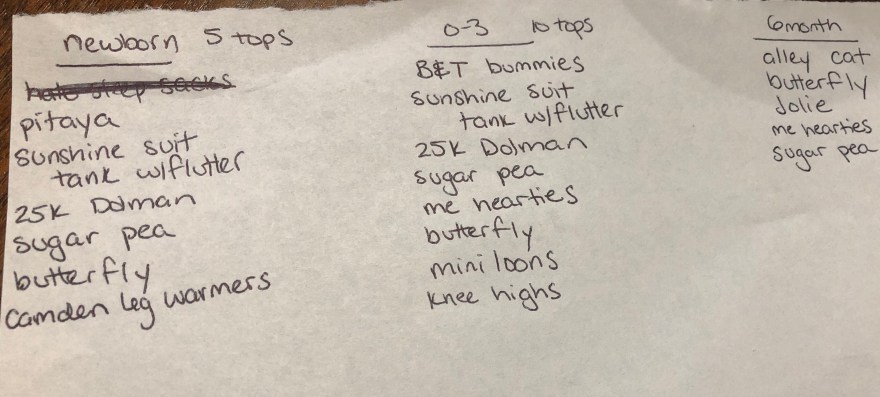 newborn 5 tops
pitaya
sunshine suit
tank w/flutter
25K Dolman
sugar pea
butterfly
camden leg warmers
0-3 10 tops
B&T bummies
sunshine suit
tank w/flutter
25K Dolman
sugar pea
me hearties
butterfly
mini loons
knee highs
6month
alley cat
butterfly
Jolie
me hearties
sugar pea